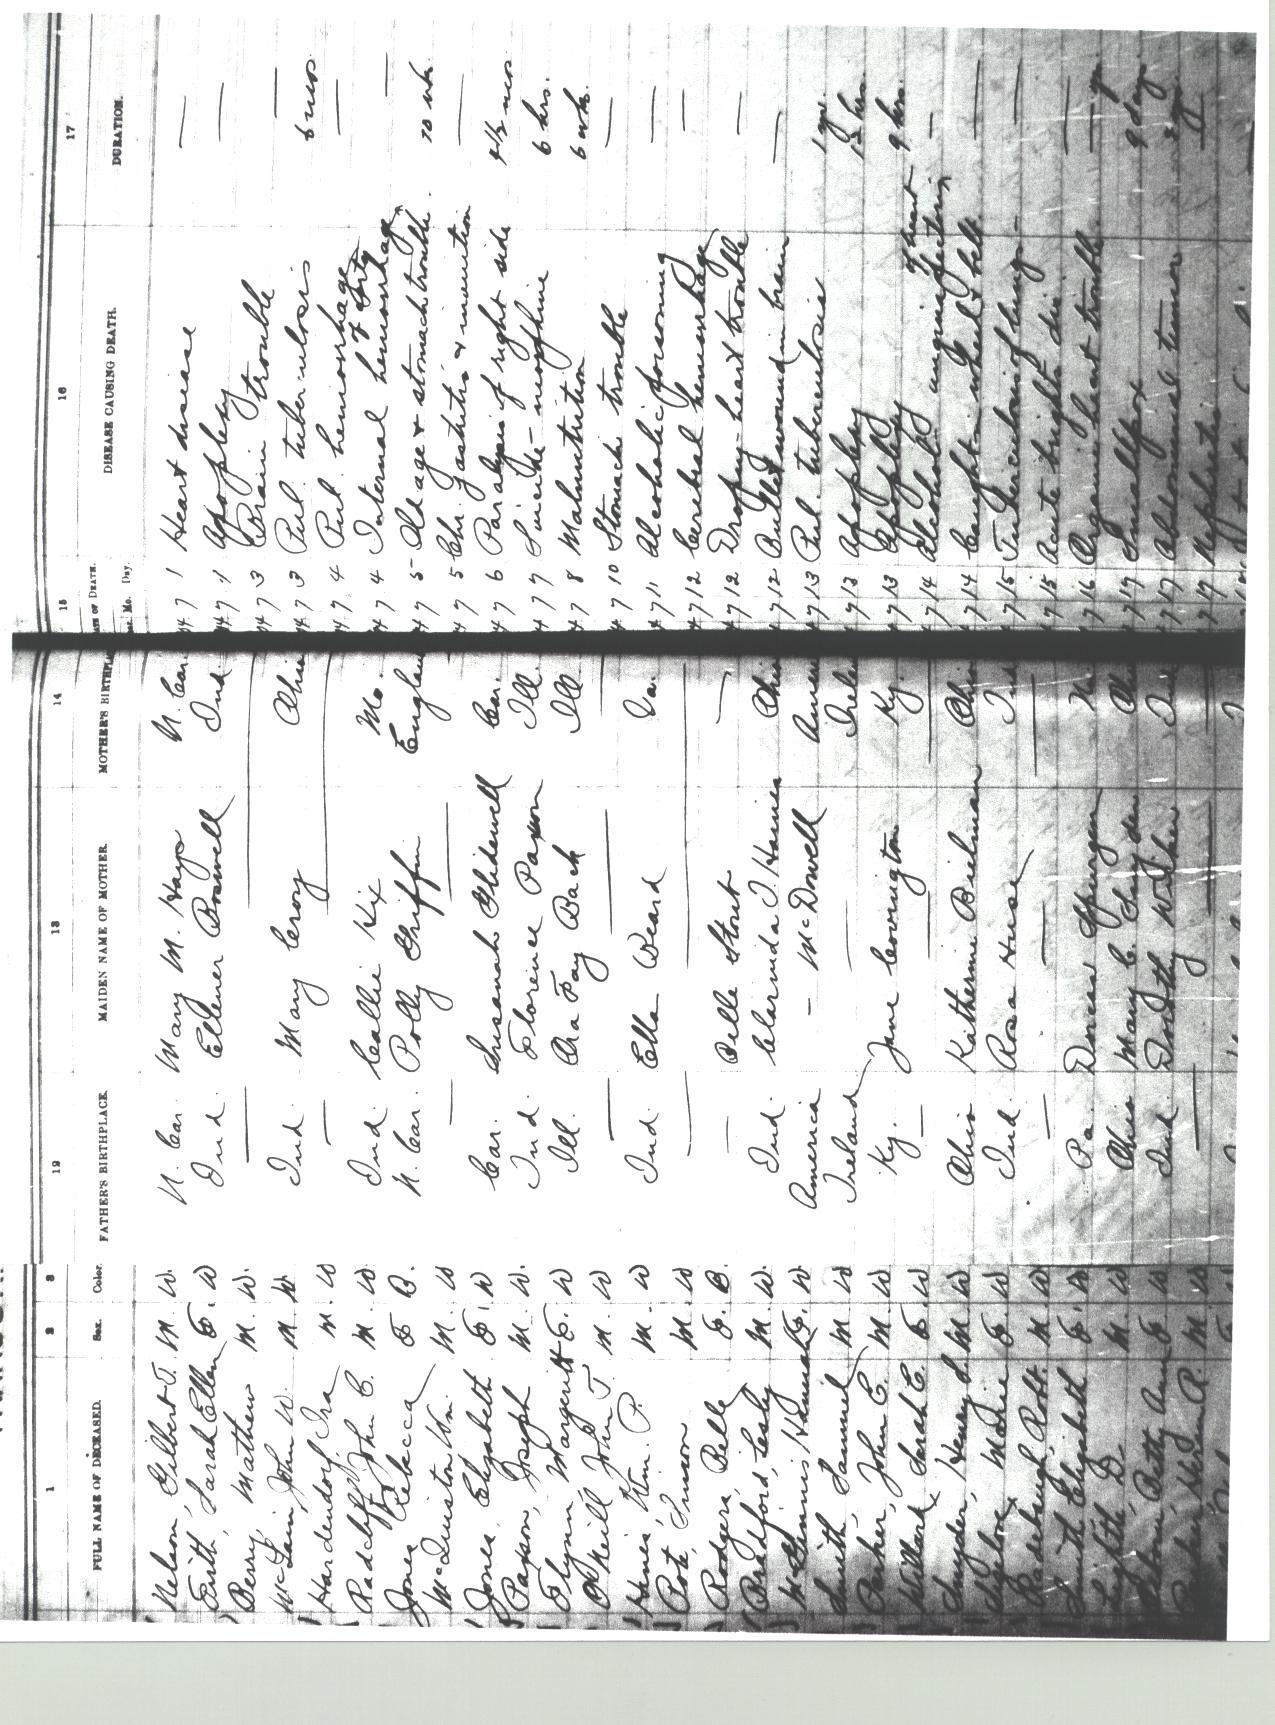 1 2 3 12 13 14 15 16 17
FULL NAME OF DECEASED. Sex. Color. FATHER'S BIRTHPLACE. MAIDEN NAME OF MOTHER. MOTHER'S BIRTHPLA DATE OF DEATH. Mo. Day. DISEASE CAUSING DEATH. DURATION.
Nelson, Gilbert T. M. W. N. Car. Mary M. Hays N. Car. 04 7 1 Heart disease —
Sarah Ellen F. W Ind. Ellener Boswell Ind. 04 7 1 Apoplexy —
Berry, Mathew M. W. — — — 04 7 3 Brain trouble
McLain, John W. M. W Ind. Mary Croy Ohio 04 7 3 Pul. tuberculosis 6 mos
Hardendorf, Ira M. W — — — 04 7 4 Pul. hemorrhage —
Radcliff, John C. M. W Ind. Callie Kix Mo. 04 7 4 Internal hemorrhage —
Jones Rebecca F B. N. Car. Polly Griffin Englan 04 7 5 Old age & stomach trouble. 20 wks.
McQuiston Wm. M. W — — — 4 7 5 Chr. gastritis & inunition —
Jones, Elizabeth F. W Car. Susanah Glidewell Car. 4 7 6 Paralysis of right side 4½ mos.
Paxson, Joseph M. W. Ind. Florence Paxson Ill. 4 7 7 Suicide - morphine 6 hrs.
Flynn, Margerett F. W Ill Ora Fay Back Ill. 4 7 8 Malnutrition 6 wks.
O'Neill John T. M. W — — — 4 7 10 Stomach trouble —
Hines, Wm. P. M. W Ind. Ella Weard Ia. 4 7 11 Alcoholic poisoning —
Root, Simon M. W — — — 4 7 12 Cerebral hemorrhage —
Rodgers Belle F. B. — Belle Stout — 4 7 12 Dropsy - heart trouble —
Bradford, Lesly M. W. Ind. Clarinda J. Haines Ohio 4 7 12 Bullet wound in brain —
McGinnis Hannah F. W. America - McDowell Amer 4 7 13 Pul. tuberculosis 1 yr.
Smith Samuel M. W Ireland — Irelan 4 7 13 Apoplexy 12 hrs.
Parker, John E. M. W Ky. Jane Covington Ky. 4 7 13 Apoplexy 9 hrs.
Willard Sarah E. F. W — — — 7 14 Alcoholic angina pectoris of heart —
Snyder, Henry S. M. W Ohio Katherine Bielman Ohio 7 14 Caught in wheel & belt. —
Marie F. W Ind. Rosa Huse Ind 7 15 Tuberculosis of lungs - —
Radebaugh, Robt. M. W — — — 7 15 Acute brights dis. —
Smith Elizabeth F. W Pa. Dorcas Spurgen 7 16 Organic heart trouble.
Light D M. W Ohio Mary C. Ohi 7 17 Smallpox 9 days
Betty Ann F. W Ind. Dorothy In 7 17 Abdominal tumor
Henry R. M. W — — 7 17 Nephritis —